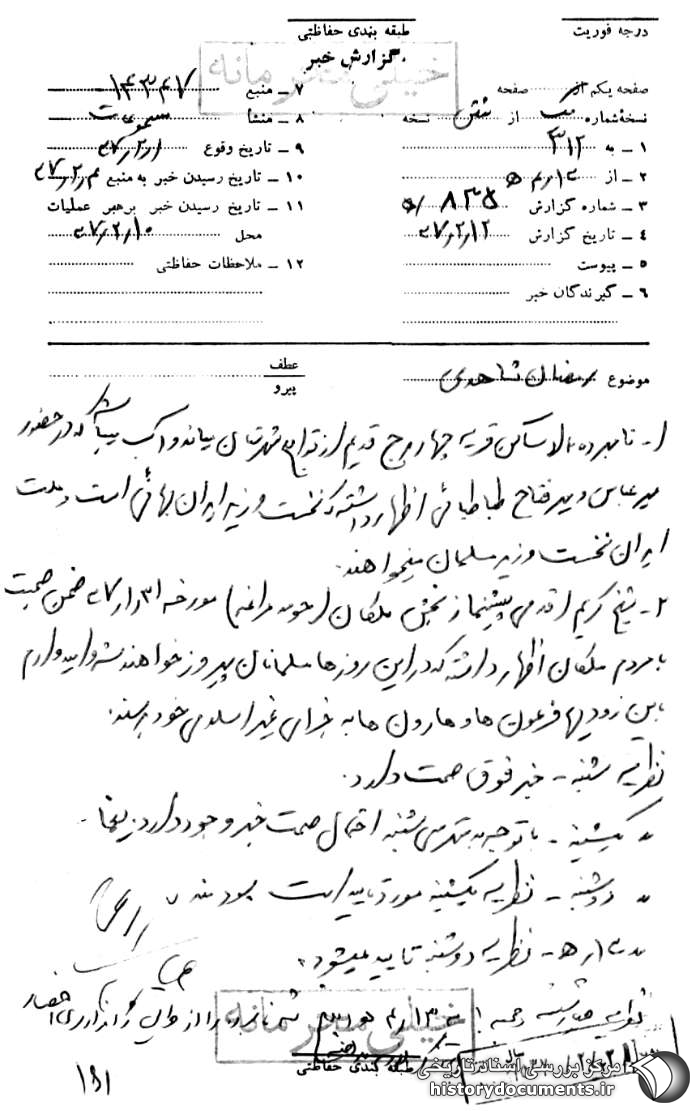 درجه فوریت
طبقه بندی حفاظتی
گزارش خبر
خیلی محرمانه
صفحه یکم از صفحه
نسخه شماره یک از شش نسخه
۱ – به ۳۱۲
۲ – از ۱۳ ه ۳
۳ – شماره گزارش ۸۳۵
۴ – تاریخ گزارش ۳۷/۲/۱۲
۵ – پیوست
۶ – گیرندگان خبر
۷ – منبع ۱۴۳۴۷
۸ – منشأ مسموعات
۹ – تاریخ وقوع
۱۰ – تاریخ رسیدن خبر به منبع
۱۱ – تاریخ رسیدن خبر برهبر عملیات
محل ۳۷/۲/۱۰
۱۲ – ملاحظات حفاظتی
موضوع رمضان شاهدی
عطف
پیرو
۱- نامبرده بالا ساکن قریه چهار برج قدیم از توابع شهرستان میاندوآب میباشد که در حضور
میرعباس و میرفتاح طباطبائی اظهار داشته که نخست وزیر ایران بهائی است و ملت
ایران نخست وزیر مسلمان میخواهند.
۲- شیخ کریم اقدمی پیشنماز بخش ملکان (حومه مراغه) مورخه ۳۷/۱/۳۱ ضمن صحبت
با مردم ملکان اظهار داشته که در این روزها مسلمانان پیروز خواهند شد و امیدوارم
باین زودیها فرعون ها و هارون ها به جزای غیر اسلامی خود برسند.
نظریه شنبه – خبر فوق صحت دارد.
" یکشنبه – با توجه به دسترسی شنبه احتمال صحت خبر وجود دارد. یغما –
" دوشنبه – نظریه یکشنبه مورد تایید است.
" ۱۳ ه – نظریه دوشنبه تایید میشود.
نظریه چهارشنبه
خیلی محرمانه
طبقه بندی حفاظتی
۱۵۱
مرکز بررسی اسناد تاریخی
historydocuments.ir